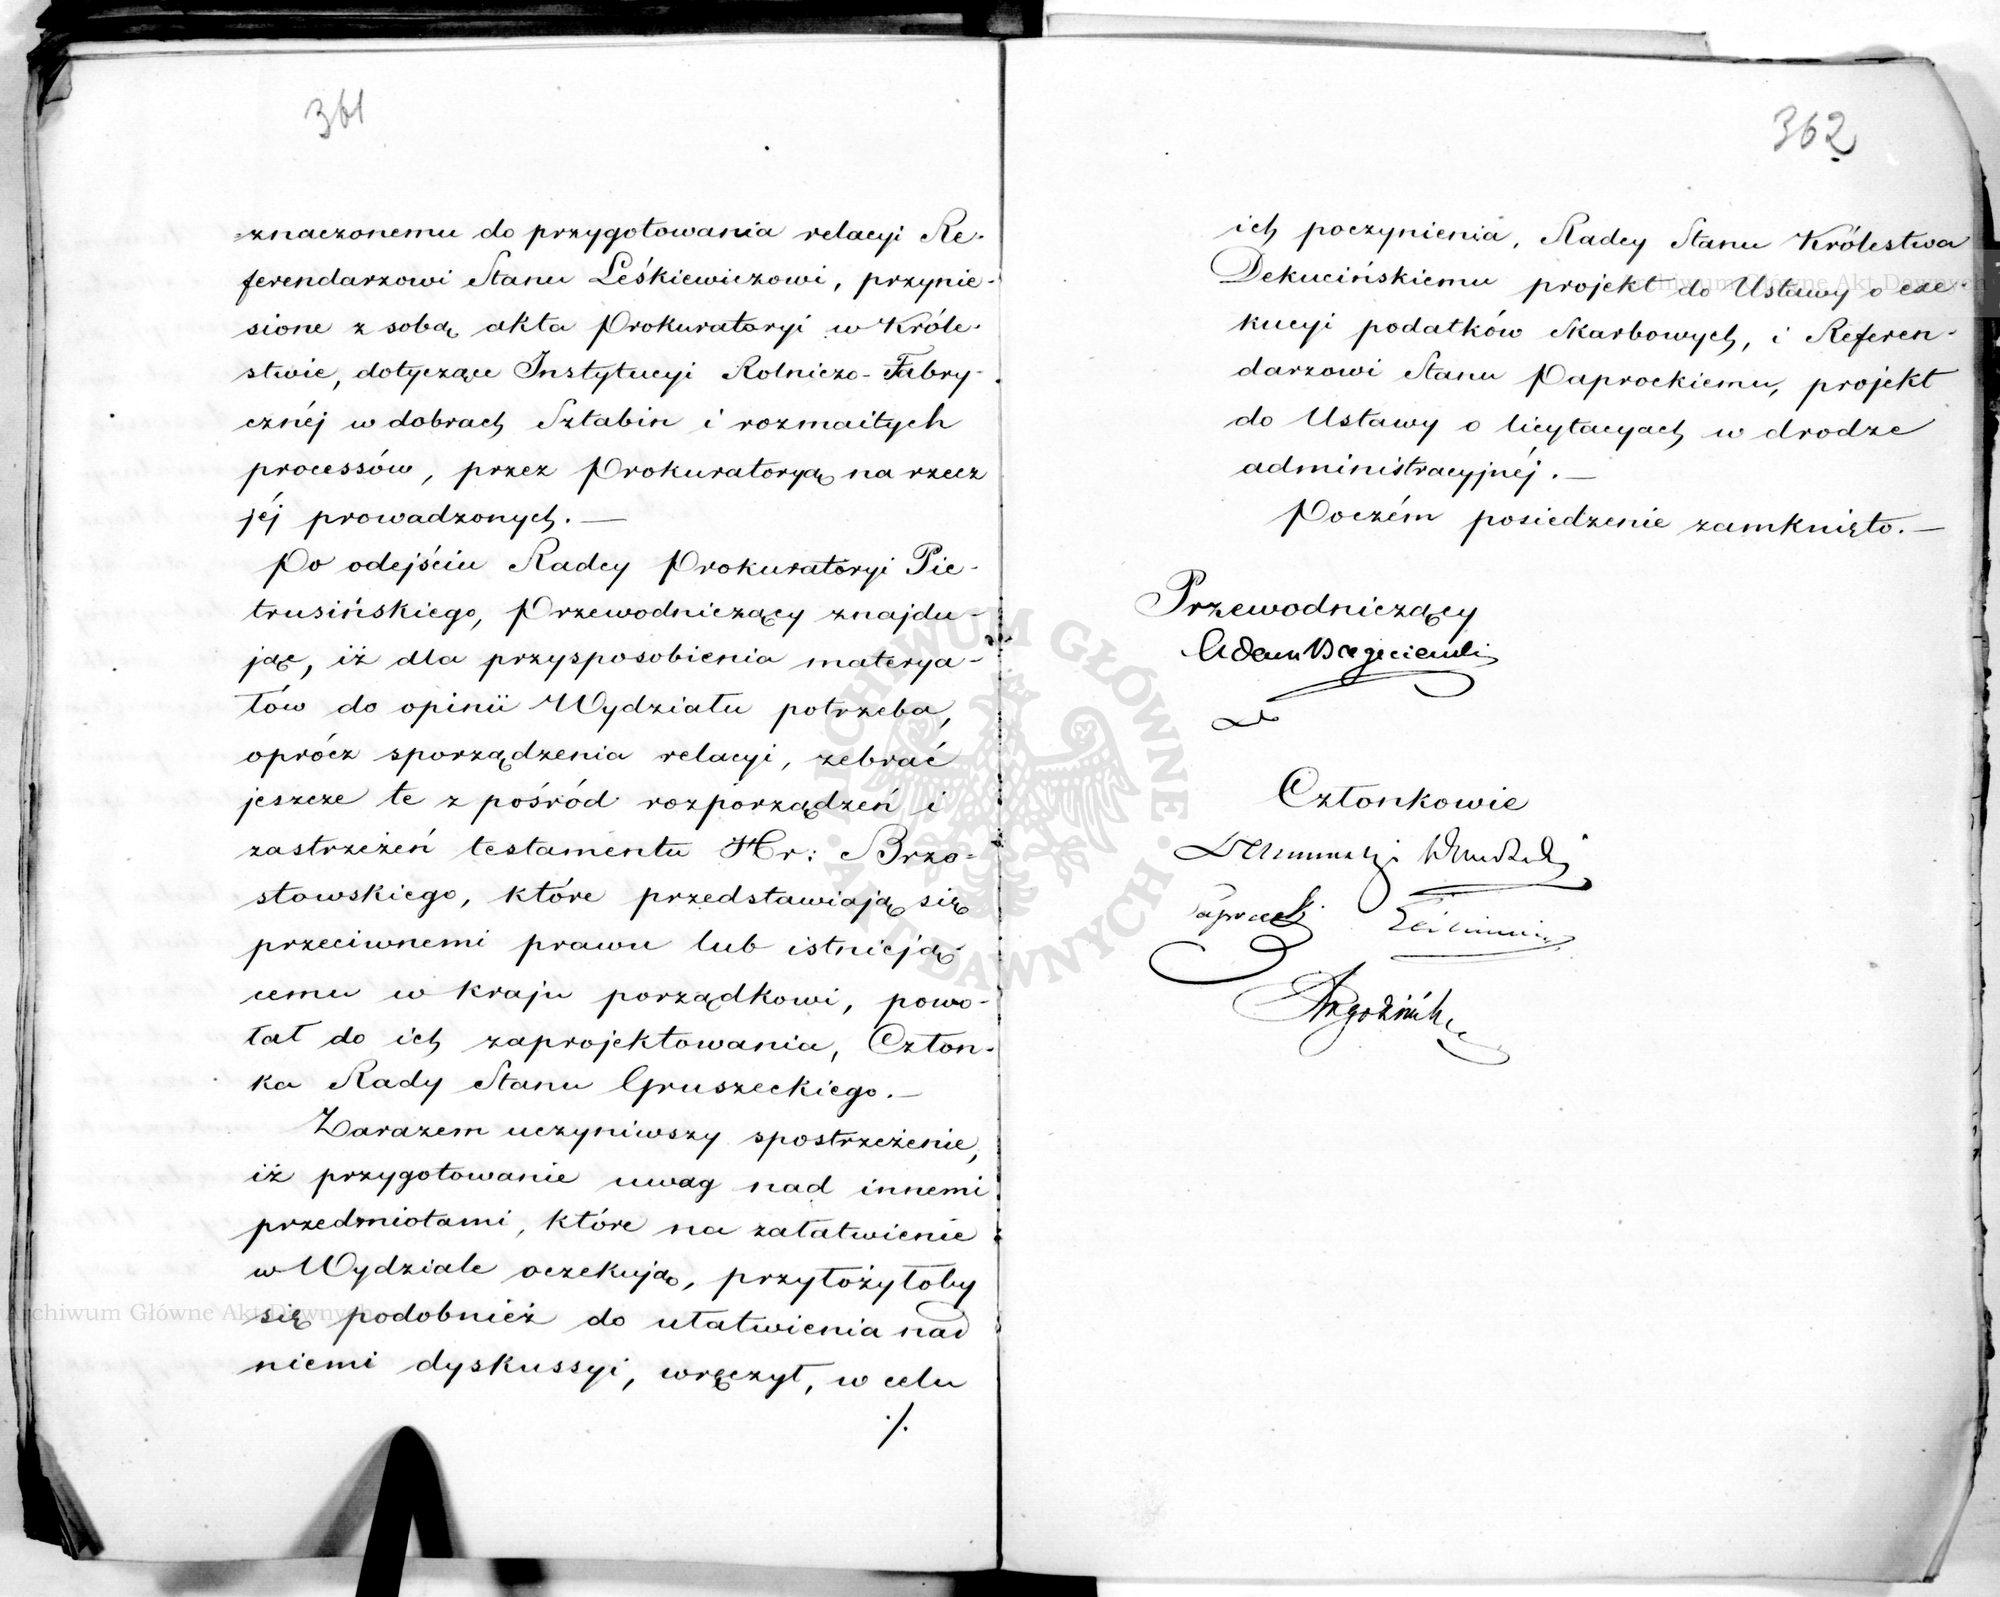 361
=znaczonemu do przygotowania relacyi Re-
ferendarzowi Stanu Leśkiewiczowi, przynie-
sione z sobą akta Prokuratoryi w Króle-
stwie, dotyczące Instytucyi Rolniczo-Fabry-
cznéj w dobrach Sztabin i rozmaitych
processów, przez Prokuratoryą na rzecz
jéj prowadzonych. —
Po odejściu Radcy Prokuratoryi Pie-
trusińskiego, Przewodniczący znajdu-
jąc, iż dla przysposobienia materya-
łów do opinii Wydziału potrzeba,
oprócz sporządzenia relacyi, zebrać
jeszcze te z pośród rozporządzeń i
zastrzeżeń testamentu Hr: Brzo-
stowskiego, które przedstawiają się
przeciwnemi prawu lub istnieją-
cemu w kraju porządkowi, powo-
łał do ich zaprojektowania, Człon-
ka Rady Stanu Gruszeckiego. —
Zarazem uczyniwszy spostrzeżenie,
iż przygotowanie uwag nad innemi
przedmiotami, które na załatwienie
w Wydziale oczekują, przyłożyłoby
się podobnież do ułatwienia nad
niemi dyskussyi, wręczył, w celu
./.
362
ich poczynienia, Radcy Stanu Królestwa
Dekucińskiemu projekt do Ustawy o exe-
kucyi podatków Skarbowych, i Referen-
darzowi Stanu Paprockiemu, projekt
do Ustawy o licytacyach w drodze
administracyjnéj. —
Poczém posiedzenie zamknięto. —
Przewodniczący
Adam
Członkowie
Paprocki
ARCHIWUM GŁÓWNE AKT DAWNYCH
Archiwum Główne Akt Dawnych
Archiwum Główne Akt Dawnych